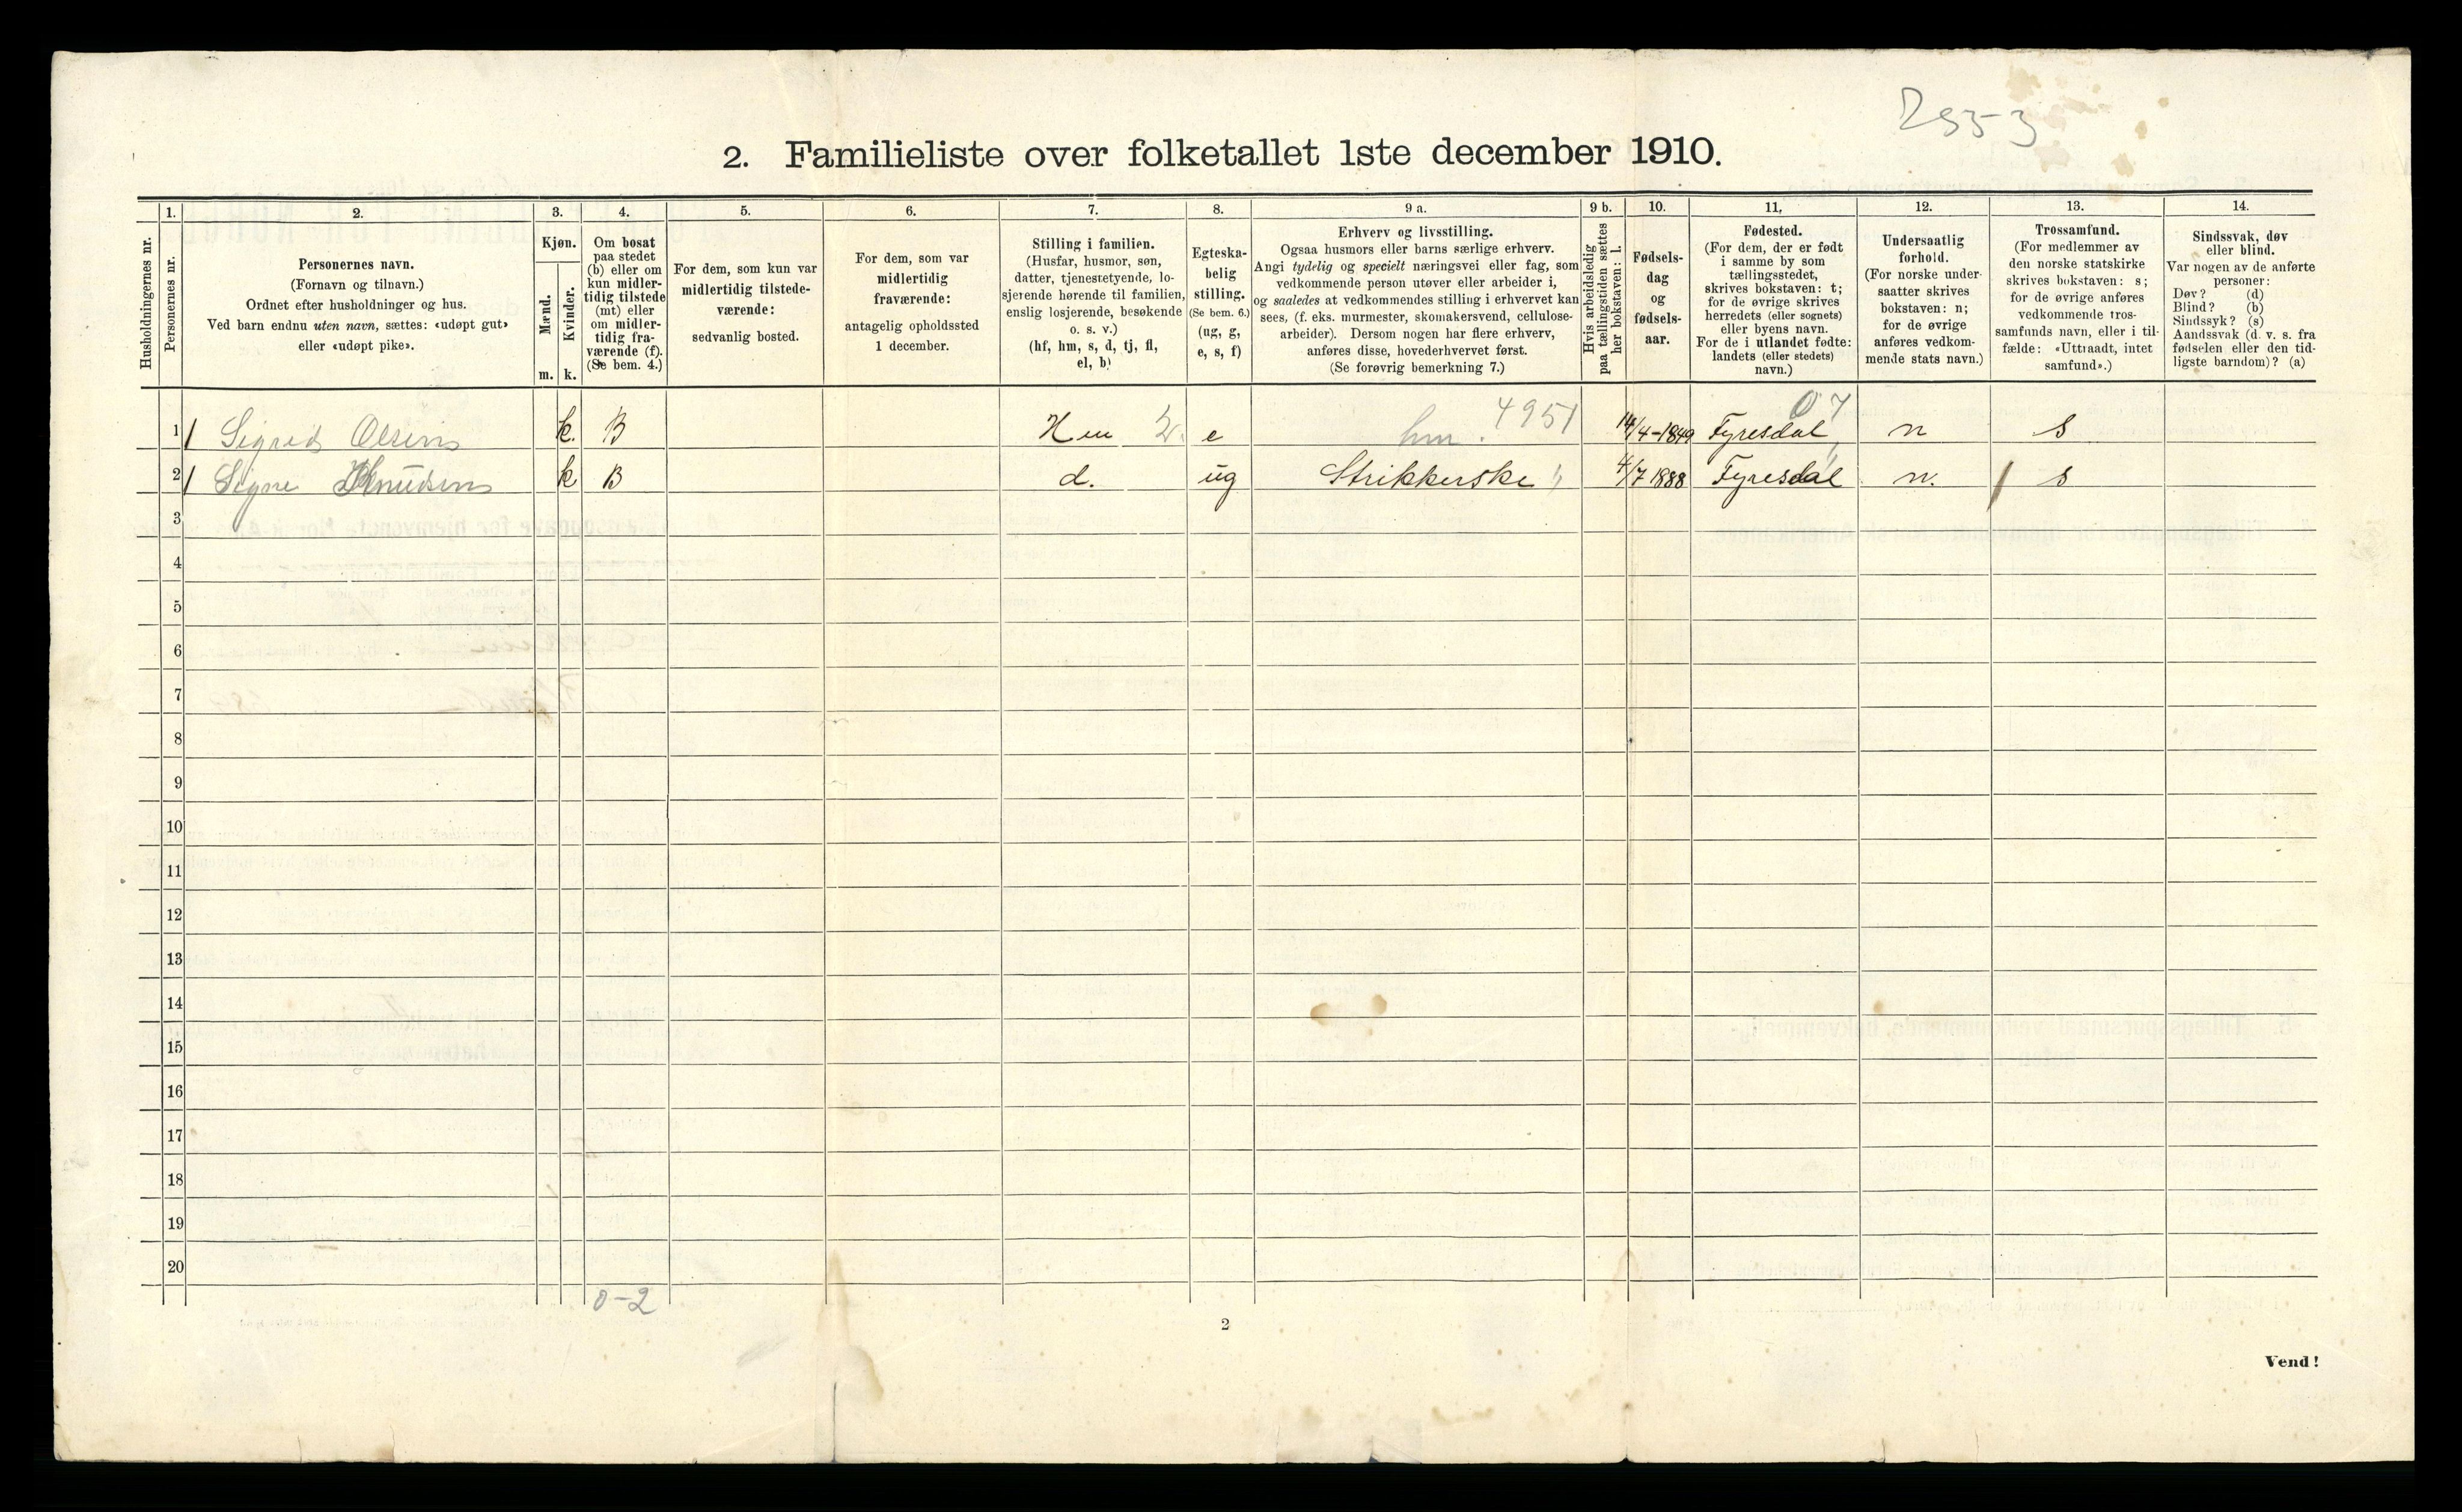 2. Familieliste over folketallet 1ste december 1910.
Husholdningernes nr.
1.
Personernes nr.
2.
Personernes navn.
(Fornavn og tilnavn.)
Ordnet efter husholdninger og hus.
Ved barn endnu uten navn, sættes: «udøpt gut»
eller «udøpt pike».
3.
Kjøn.
Mænd.
Kvinder.
m. k.
4.
Om bosat
paa stedet
(b) eller om
kun midler-
tidig tilstede
(mt) eller
om midler-
tidig fra-
værende (f).
(Se bem. 4.)
5.
For dem, som kun var
midlertidig tilstede-
værende:
sedvanlig bosted.
6.
For dem, som var
midlertidig
fraværende:
antagelig opholdssted
1 december.
7.
Stilling i familien.
(Husfar, husmor, søn,
datter, tjenestetyende, lo-
sjerende hørende til familien,
enslig losjerende, besøkende
o. s. v.)
(hf, hm, s, d, tj, fl,
el, b)
8.
Egteska-
belig
stilling.
(Se bem. 6.)
(ug, g,
e, s, f)
9 a.
Erhverv og livsstilling.
Ogsaa husmors eller barns særlige erhverv.
Angi tydelig og specielt næringsvei eller fag, som
vedkommende person utøver eller arbeider i,
og saaledes at vedkommendes stilling i erhvervet kan
sees, (f. eks. murmester, skomakersvend, cellulose-
arbeider). Dersom nogen har flere erhverv,
anføres disse, hovederhvervet først.
(Se forøvrig bemerkning 7.)
9 b.
Hvis arbeidsledig
paa tællingstiden sættes
her bokstaven: l.
10.
Fødsels-
dag
og
fødsels-
aar.
11.
Fødested.
(For dem, der er født
i samme by som
tællingsstedet,
skrives bokstaven: t;
for de øvrige skrives
herredets (eller sognets)
eller byens navn.
For de i utlandet fødte:
landets (eller stedets)
navn.)
12.
Undersaatlig
forhold.
(For norske under-
saatter skrives
bokstaven: n;
for de øvrige
anføres vedkom-
mende stats navn.)
13.
Trossamfund.
(For medlemmer av
den norske statskirke
skrives bokstaven: s;
for de øvrige anføres
vedkommende tros-
samfunds navn, eller i til-
fælde: «Uttraadt, intet
samfund».)
14.
Sindssvak, døv
eller blind.
Var nogen av de anførte
personer:
Døv? (d)
Blind? (b)
Sindssyk? (s)
Aandssvak (d. v. s. fra
fødselen eller den tid-
ligste barndom)? (a)
1 Sigrid Olsen k. B e hm. 4951 14/4-1849 Fyresdal n s
2 Signe Knudsen k B d. ug Strikkerske 4/7 1888 Fyresdal n. s
3
4
5
6
7
8
9
10
11
12
13
14
15
16
17
18
19
20
0-2
2
Vend!